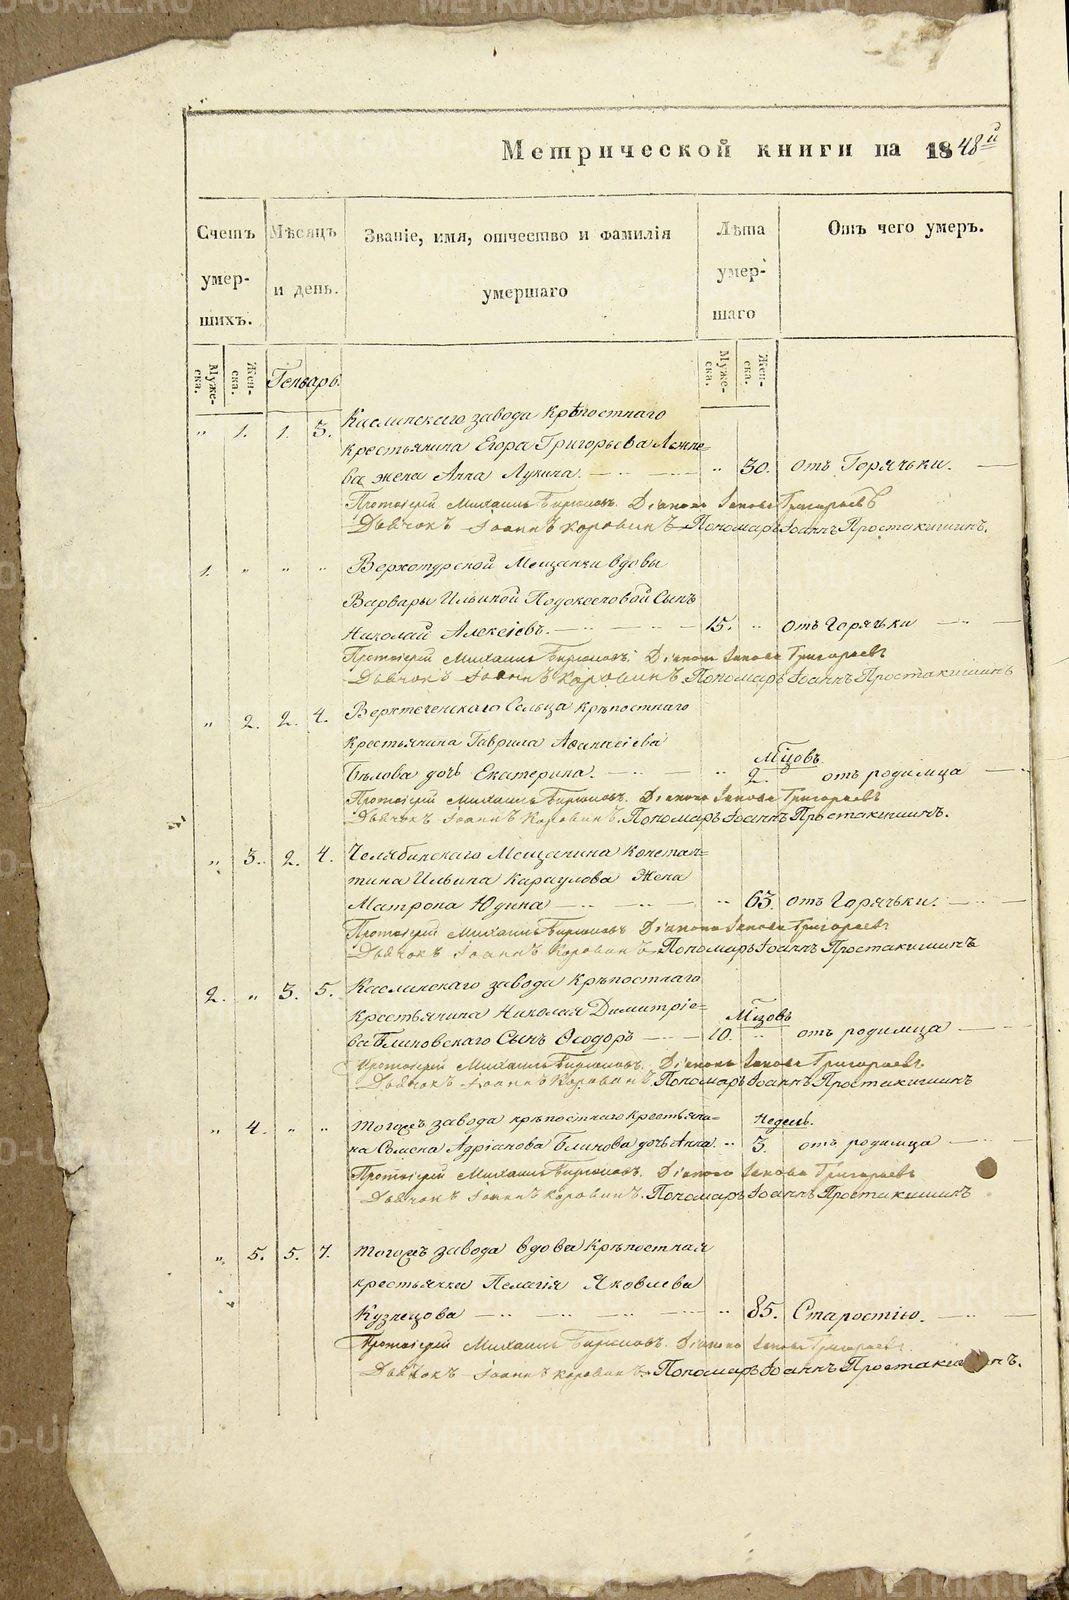 Метрической книги на 1848й
Счетъ умер-шихъ.
Мѣсяцъ и день.
Званіе, имя, отчество и фамилія умершаго
Лѣта умер-шаго
Отъ чего умеръ.
Муже-ска. Жен-ска. Генварь. Муже-ска. Жен-ска.
" 1. 1. 3. Каслинскаго завода крѣпостнаго
крестьянина Егора Григорьева
ва жена Анна Лукина. " 30. отъ Горячьки.
Протоіерей Михаилъ Бирюковъ. Діаконъ Іаковъ Григорьевъ
Дьячокъ Іоаннъ Коровинъ Пономарь Іоаннъ Простакишинъ.
1. " " " Верхотурской Мещанки вдовы
Варвары Ильиной Сынъ
Николай Алексѣевъ. 15. " отъ Горячьки
Протоіерей Михаилъ Бирюковъ. Діаконъ Іаковъ Григорьевъ
Дьячокъ Іоаннъ Коровинъ. Пономарь Іоаннъ Простакишинъ
" 2. 2. 4. Верхтеченскаго Сельца крѣпостнаго
крестьянина Гаврила Аѳанасіева
Мѣсцовъ.
Бѣлова дочь Екатерина. " 2. отъ родимца
Протоіерей Михаилъ Бирюковъ. Діаконъ Іаковъ Григорьевъ
Дьячокъ Іоаннъ Коровинъ. Пономарь Іоаннъ Простакишинъ.
" 3. 2. 4. Челябинскаго Мещанина Констан=
тина Ильина Караулова Жена
Матрона Юдина " 63. отъ Горячьки.
Протоіерей Михаилъ Бирюковъ Діаконъ Іаковъ Григорьевъ
Дьячокъ Іоаннъ Коровинъ Пономарь Іоаннъ Простакишинъ
2. " 3. 5. Каслинскаго завода Крѣпостнаго
крестьянина Николая Димитріе=
Мѣсцовъ
ва Блиновскаго Сынъ Ѳеодоръ 10. " отъ родимца
Протоіерей Михаилъ Бирюковъ. Діаконъ Іаковъ Григорьевъ
Дьячокъ Іоаннъ Коровинъ Пономарь Іоаннъ Простакишинъ
" 4. " " Тогожъ завода крѣпостнаго крестьяни=
Недель.
на Семена Адріанова Блинова дочь Анна " 3. отъ родимца
Протоіерей Михаилъ Бирюковъ. Діаконъ Іаковъ Григорьевъ
Дьячокъ Іоаннъ Коровинъ. Пономарь Іоаннъ Простакишинъ
" 5. 5. 7. Тогожъ завода вдова Крѣпостная
крестьянка Пелагія Яковлева
Кузнецова " 85. Старостію.
Протоіерей Михаилъ Бирюковъ. Діаконъ Іаковъ Григорьевъ
Дьячокъ Іоаннъ Коровинъ. Пономарь Іоаннъ
METRIKI.GASO-URAL.RU